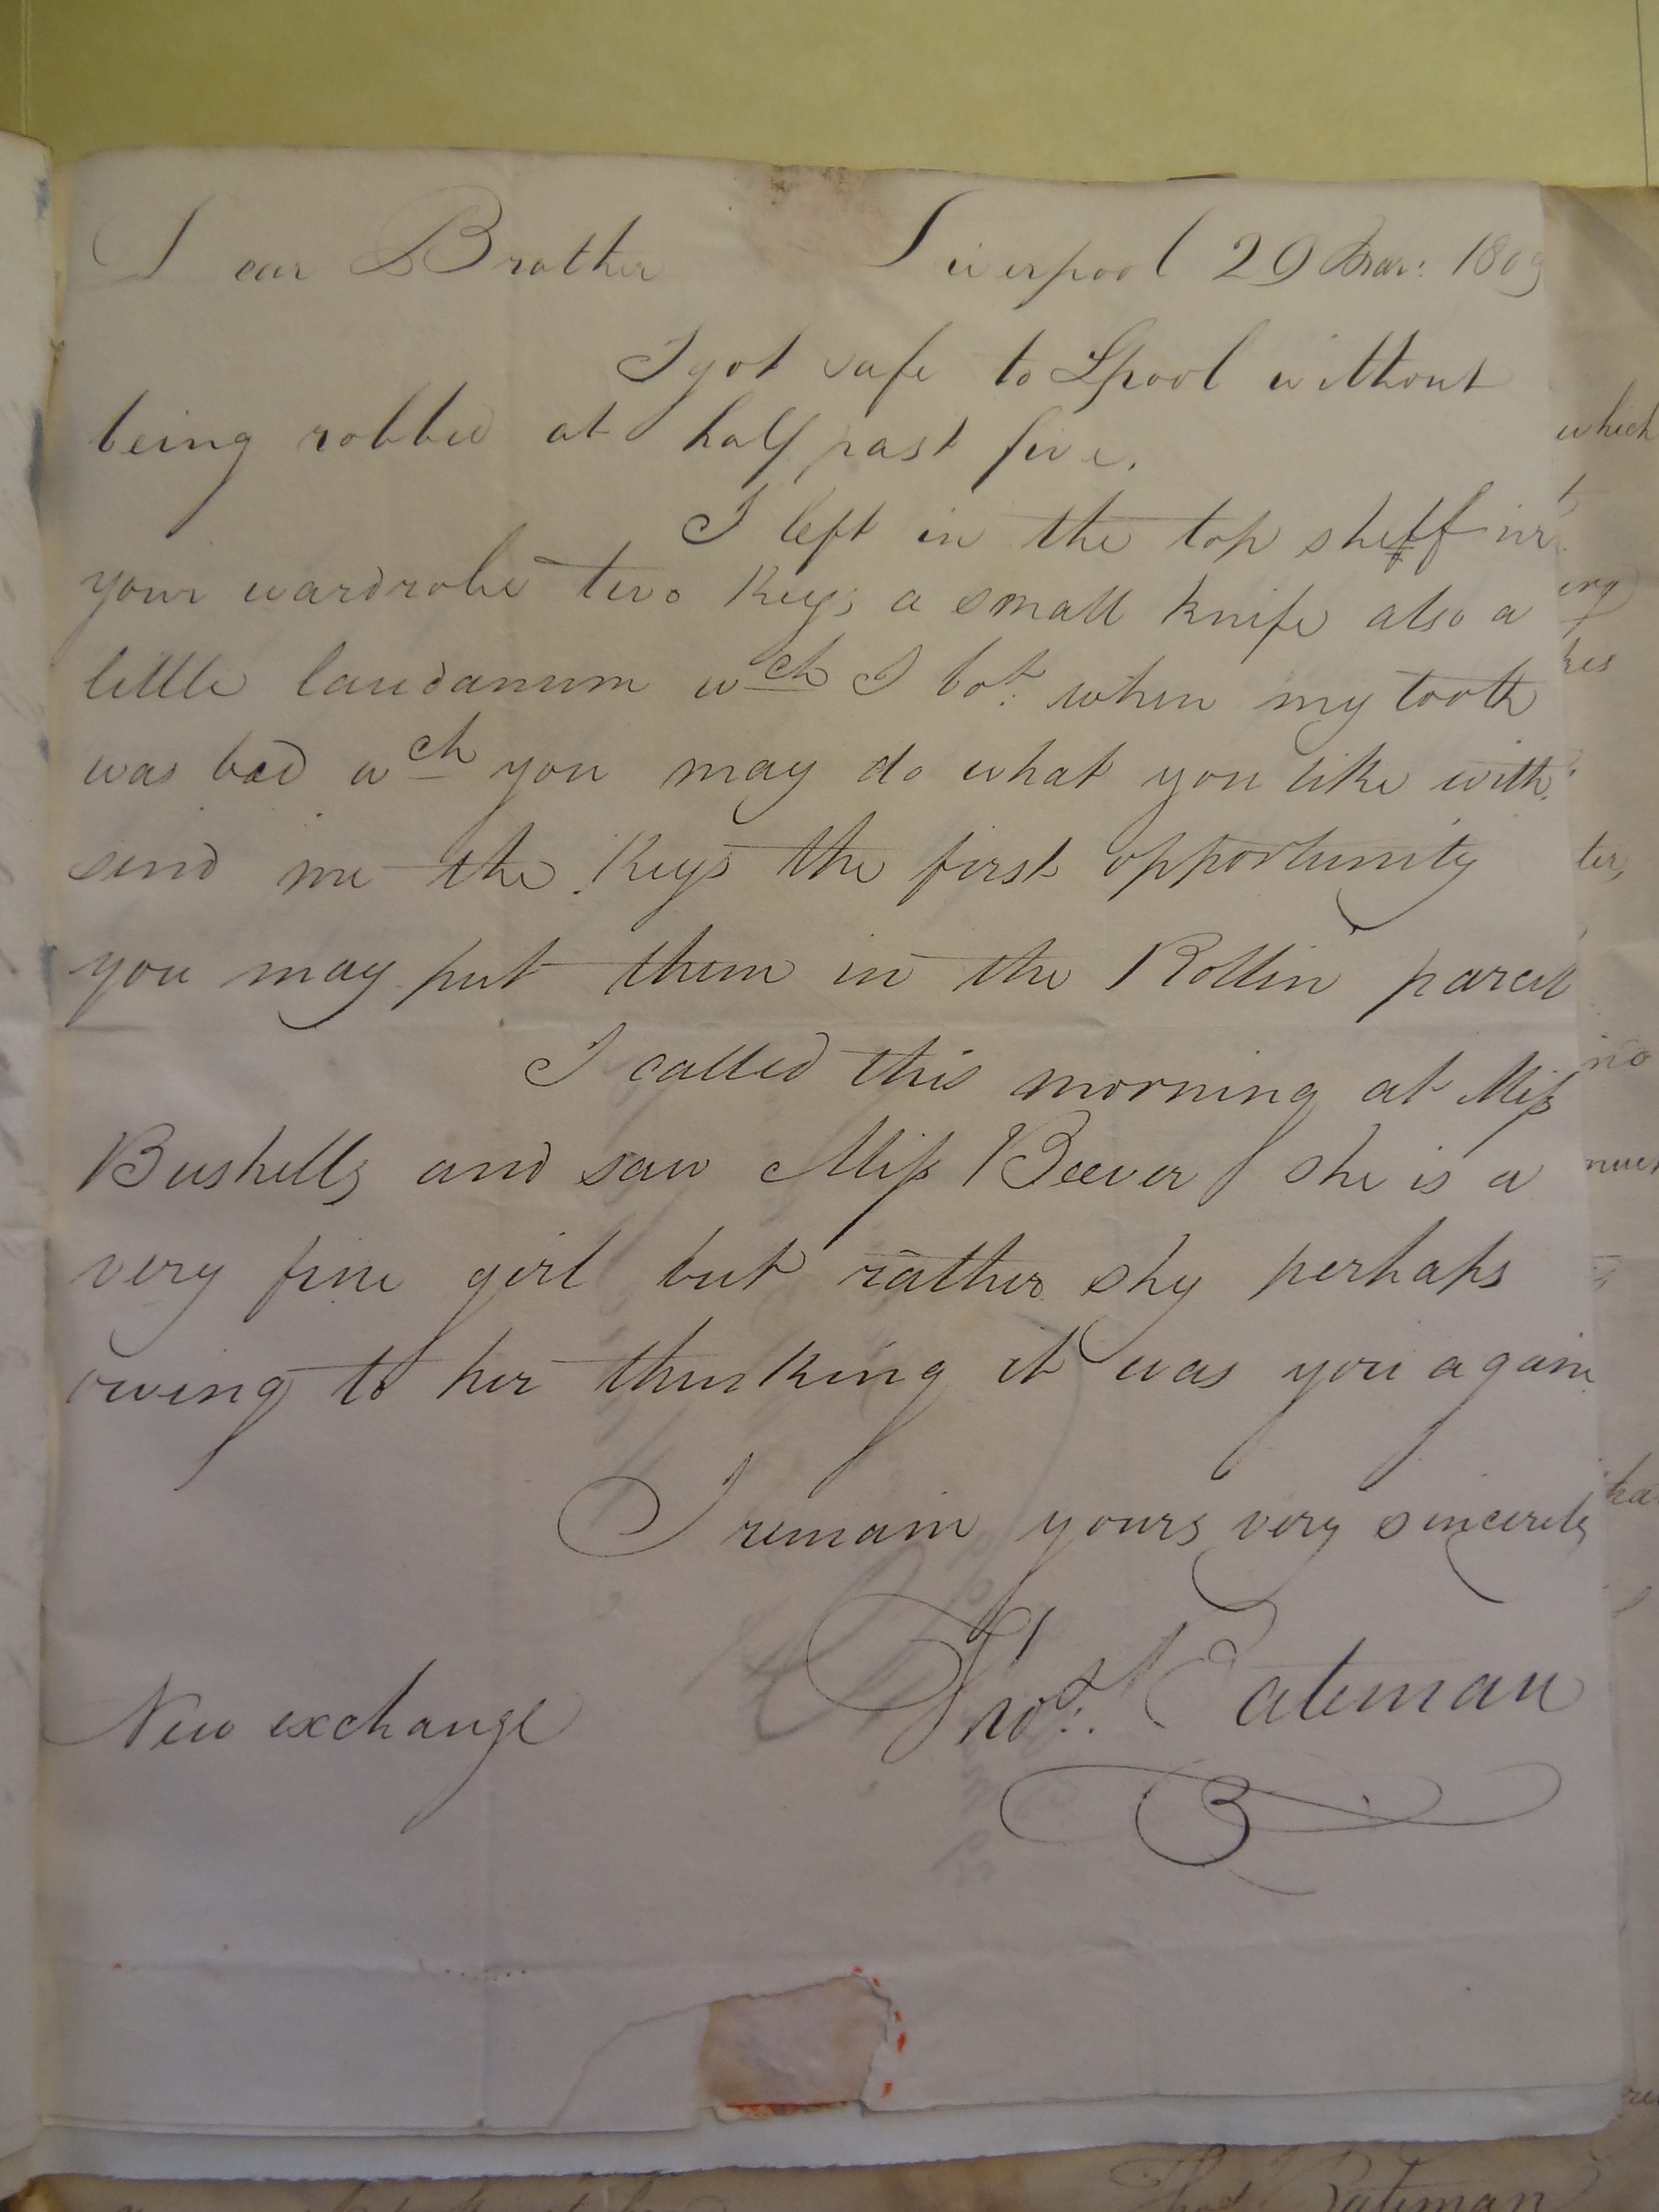 Dear Brother Liverpool 29 Mar: 1809
I got safe to Lpool without
being robbed at half past five.
I left in the top shelf in
your wardrobe two Keys a small knife also a
little laudanum wch I bot. when my tooth
was bad wch you may do what you like with.
send me the Keys the first opportunity
you may put them in the Rollin parcel
I called this morning at Miss
Bushells and saw Miss Beever she is a
very fine girl but rather shy perhaps
owing to her thinking it was you again
I remain yours very sincerely
Bateman
New exchange
which
ter,
no
Bateman